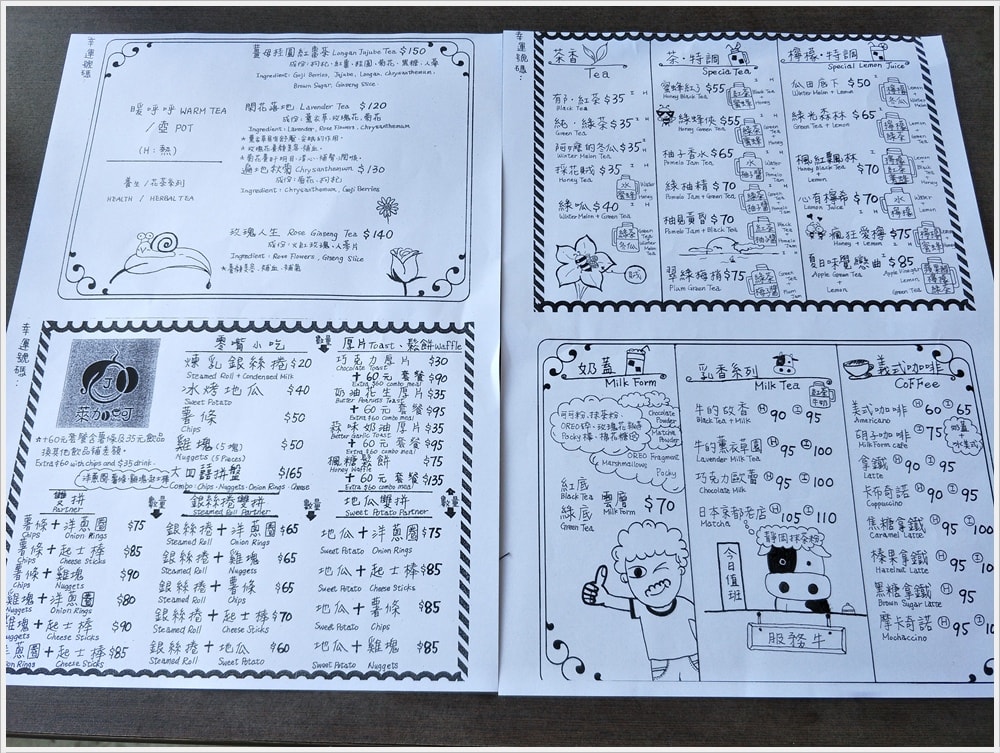 幸運號碼:
薑母桂圓紅棗茶 Longan Jujube Tea $150
成份:枸杞.紅棗.桂圓.菊花.黑糖.人蔘
Ingredient: Goji Berries, Jujube, Longan, chrysanthemum,
Brown Sugar, Ginseng Slice
暖呼呼 WARM TEA
/ 壺 POT
(H: 熱)
養生/花茶系列
HEALTH / HERBAL TEA
開花落地 Lavender Tea $120
成份:薰衣草.玫瑰花.菊花
Ingredient: Lavender, Rose Flowers, Chrysanthemum
遍地秋菊 Chrysanthemum $130
成份:菊花.枸杞
Ingredient: Chrysanthemum, Goji Berrins
玫瑰人生 Rose Ginseng Tea $140
成份:火紅玫瑰.人蔘片
Ingredient: Rose Flowers, Gtseng Slice
幸運號碼:
J
萊加呵
☆+60元套餐含薯條及35元飲品
換其他飲品補差額。
Extra $60 with chips and $35 drink.
零嘴小吃 數量
煉乳銀絲捲 $20
Steamed Roll + Condensed Milk
冰烤地瓜 $40
Sweet Potato
薯條 $50
Chips
雞塊(5塊) $50
Nuggets (5 Pieces)
大四囍拼盤 $165
Combo: Chips + Nuggets + Onion Rings + Cheese
厚片Toast、鬆餅Waffle
巧克力厚片 $30
Chocolate Toast
+60元 套餐 $90
Extra $60 combo meal
奶油花生厚片 $35
Butter Peanuts Toast
+60元 套餐 $95
Extra $60 combo meal
蒜味奶油厚片 $35
Butter Garlic Toast
+60元 套餐 $95
Extra $60 combo meal
楓糖鬆餅 $75
Honey Waffle
+60元 套餐 $135
Extra $60 combo meal
雙拼 數量
Partner
薯條+洋蔥圈 $75
Chips Onion Rings
薯條+起士棒 $85
Chips Cheese Sticks
薯條+雞塊 $90
Chips Nuggets
雞塊+洋蔥圈 $80
Nuggets Onion Rings
雞塊+起士棒 $90
Nuggets Cheese Sticks
洋蔥圈+起士棒 $85
Onion Rings Cheese Sticks
銀絲捲雙拼 數量
Steamed Roll Partner
銀絲捲+洋蔥圈 $65
Steamed Roll Onion Rings
銀絲捲+雞塊 $65
Steamed Roll Nuggets
銀絲捲+薯條 $65
Steamed Roll Chips
銀絲捲+起士棒 $70
Steamed Roll Cheese Sticks
銀絲捲+地瓜 $60
Steamed Roll Sweet Potato
地瓜雙拼 數量
Sweet Potato Partner
地瓜+洋蔥圈 $75
Sweet Potato Onion Rings
地瓜+起士棒 $85
Sweet Potato Cheese Sticks
地瓜+薯條 $85
Sweet Potato Chips
地瓜+雞塊 $85
Sweet Potato Nuggets
幸運號碼:
茶香
Tea
紅茶 $35
Black Tea
純.綠茶 $35
Green Tea
阿嬤的冬瓜 $35
Water Melon Tea
採花賊 $35
Honey Tea
水
蜜蜂
綠呱 $40
Water Melon + Green Tea
綠茶
冬瓜
賊
茶.特調
Special Tea
蜜蜂紅了 $55
Honey Black Tea
紅茶
蜜蜂
綠蜂俠 $55
Honey Green Tea
綠茶
蜜蜂
柚子香水 $65
Pomelo Jam Tea
水
柚子醬
綠柚精 $70
Pomelo Jam + Green Tea
綠茶
柚子醬
柚見黃昏 $70
Pomelo Jam + Black Tea
紅茶
柚子醬
翠綠梅梢 $75
Plum Green Tea
綠茶
梅子醬
檸檬.特調
Special Lemon Juice
瓜田底下 $50
Water Melon + Lemon
檸檬
冬瓜
綠光森林 $65
Green Tea + Lemon
檸檬
綠茶
楓紅楓林 $70
Honey Tea + Lemon
檸檬
紅茶
蜜蜂
心有檸希 $70
Lemon Juice
水
檸檬
瘋狂愛檸 $75
Honey + Lemon
夏日味覺戀曲 $85
Apple Green Tea
+
Lemon
奶蓋
Milk Form
可可粉.抹茶粉.
OREO碎.玫瑰花瓣
Pocky棒.棉花糖
Chocolate Powder
Matcha Powder
OREO Fragment
Marshmallows
Pocky
紅底
Black Tea
綠底
Green Tea
雲層 $70
Milk Form
乳香系列
Milk Tea
紅茶
牛奶
牛的故香 H 90 I 95
Black Tea + Milk
牛的薰衣草園 H 95 I 100
Lavender Milk Tea
巧克力歐蕾 H 95 I 100
Chocolate Milk
日本京都老店 H 105 I 110
Matcha
靜岡抹茶粉
今日值班
服務牛
義式咖啡
Coffee
美式咖啡 H 60 I 65
Americano
鬍子咖啡 I 75
Milk Form cafe
拿鐵 H 90 I 95
Latte
卡布奇諾 H 90 I 95
Cappuccino
焦糖拿鐵 H 95
Caramel Latte
榛果拿鐵 H 95
Hazelnut Latte
黑糖拿鐵 H 95
Brown Sugar Latte
摩卡奇諾 H 95
Mochaccino